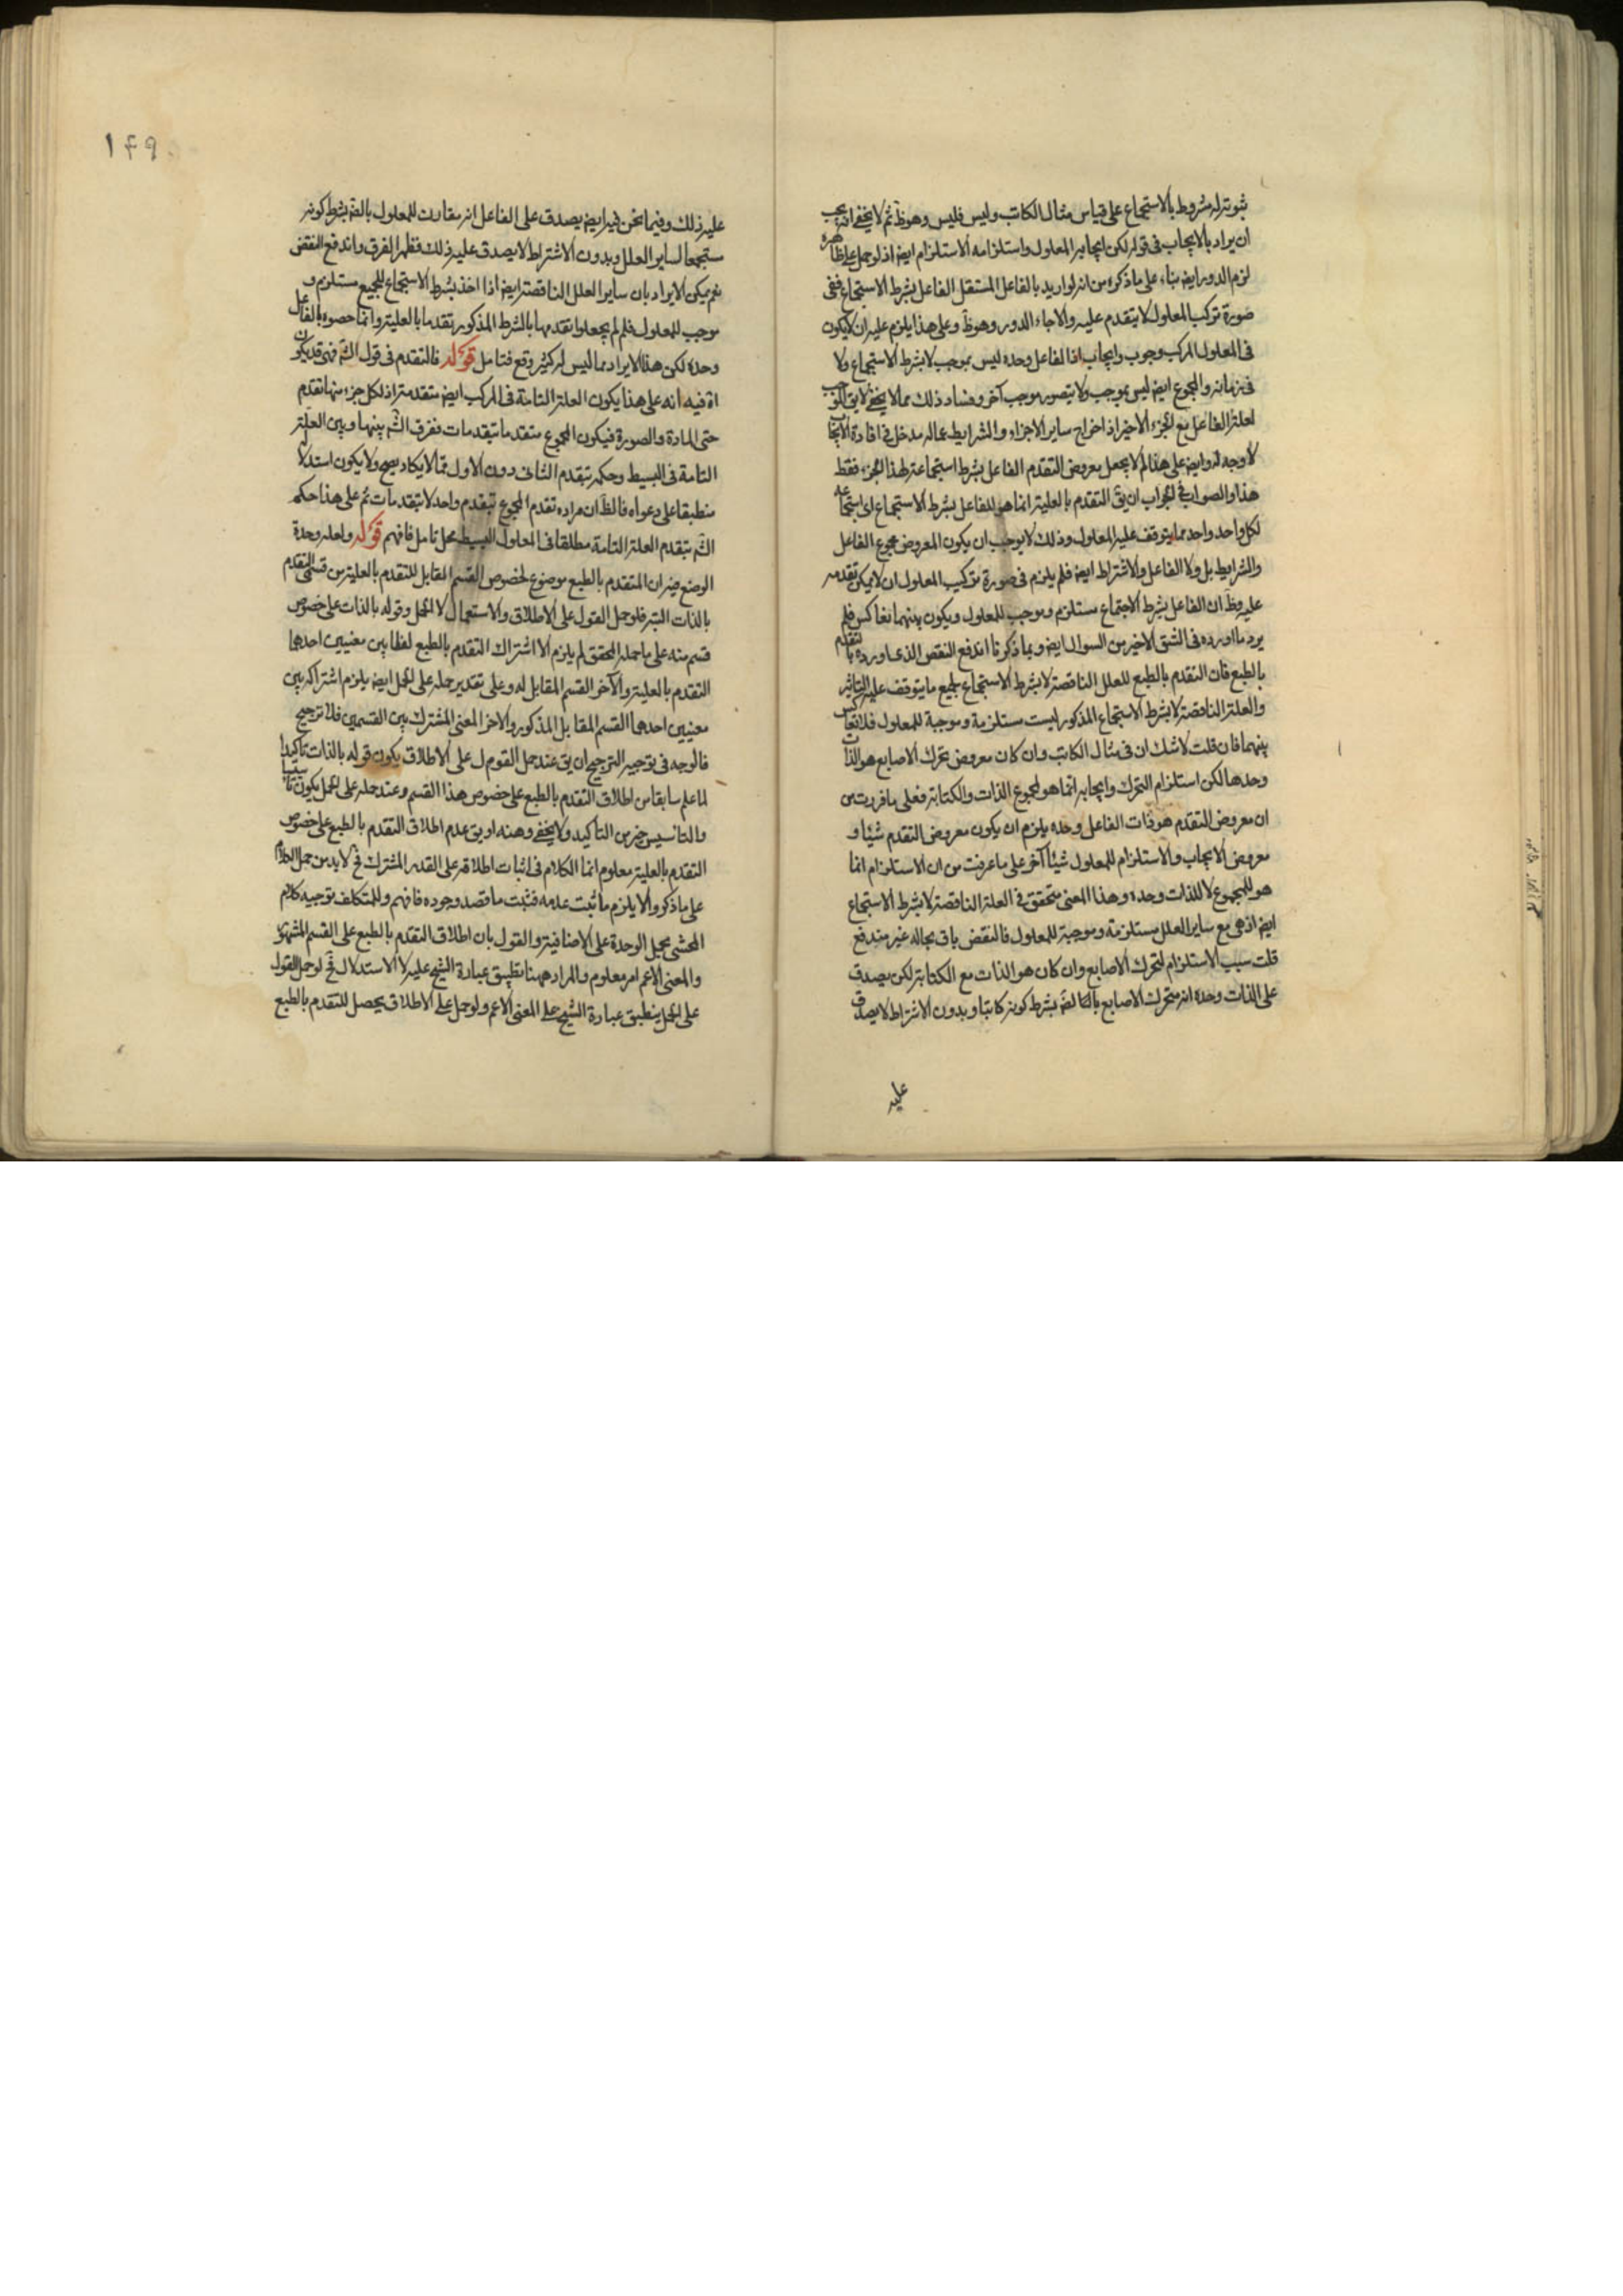 ثبوته له مشروط بالاستجماع على قياس مثال الكاتب وليس فليس وهو ظ ثم لا يخفى انه يجب
ان يراد بالايجاب في قوله لكن ايجابه المعلول واستلزامه الاستلزام ايض اذ لو حمل على ظاهره
لزم الدور ايض بناء على ما ذكره من انه لو اريد بالفاعل المستقل الفاعل بشرط الاستجماع ففي
صورة تركب المعلول لا يتقدم عليه والا جاء الدور وهو ظ وعلى هذا يلزم عليه ان لا يكون
في المعلول المركب وجوب وايجاب اذ الفاعل وحده ليس بموجب لا بشرط الاستجماع ولا
في زمانه والمجموع ايض ليس بموجب ولا يتصور موجب آخر وفساد ذلك مما لا يخفى لا يق الموجب
لعله الفاعل مع الجزء الاخير اذ اخراج ساير الاجزاء والشرايط عما له مدخل في افادة الايجاب
لا وجه له وايض على هذا لم لا يجعل معروض التقدم الفاعل بشرط استجماعه لهذا الجزء فقط
هذا والصواب في الجواب ان يق التقدم بالعلية انما هو للفاعل بشرط الاستجماع اى استجماعه
لكل واحد واحد مما يتوقف عليه المعلول وذلك لا يوجب ان يكون المعروض مجموع الفاعل
والشرايط بل ولا الفاعل والاشتراط ايض فلم يلزم في صورة تركيب المعلول ان لا يمكن تقدمه
عليه وظ ان الفاعل بشرط الاجتماع مستلزم وموجب للمعلول ويكون بينهما تعاكس فلم
يرد ما اورده في الشق الاخير من السوال ايض وبما ذكرنا اندفع النقض الذى اورده بالتقدم
بالطبع فان التقدم بالطبع للعلل الناقصة لا بشرط الاستجماع لجميع ما يتوقف عليه التاثير
والعلة الناقصة لا بشرط الاستجماع المذكور ليست مستلزمة وموجبة للمعلول فلا تعاكس
بينهما فان قلت لا شك ان في مثال الكاتب وان كان معروض تحرك الاصابع هو الذات
وحدها لكن استلزام التحرك وايجابه انما هو لمجموع الذات والكتابة فعلى ما قررت من
ان معروض التقدم هو ذات الفاعل وحده يلزم ان يكون معروض التقدم شيئا و
معروض الايجاب والاستلزام للمعلول شيئا آخر على ما عرفت من ان الاستلزام انما
هو للمجموع لا للذات وحده وهذا المعنى متحقق في العلة الناقصة لا بشرط الاستجماع
ايض اذ هي مع ساير العلل مستلزمة وموجبة للمعلول فالنقض باق بحاله غير مندفع
قلت سبب الاستلزام لتحرك الاصابع وان كان هو الذات مع الكتابة لكن يصدق
على الذات وحده انه متحرك الاصابع بالضة بشرط كونه كاتبا وبدون الاشتراط لا يصدق
عليه
۱۴۹
عليه ذلك وفيما نحن فيه ايض يصدق على الفاعل انه مقارن للمعلول بالضة بشرط كونه
مستجمعا لساير العلل وبدون الاشتراط لا يصدق عليه ذلك فظهر الفرق واندفع النقض
نعم يمكن الايراد بان ساير العلل الناقصة ايض اذا اخذ بشرط الاستجماع للجميع مستلزم و
موجب للمعلول فلم لم يجعلوا تقدمها بالشرط المذكور تقدما بالعلية وانما خصوه بالفاعل
وحده لكن هذا الايراد مما ليس له كثير وقع فتامل قوله فالتقدم في قول الش فهى قد يكون
اه فيه انه على هذا يكون العلة التامة في المركب ايض متقدمة اذ لكل جزء منها تقدم
حتى المادة والصورة فيكون المجموع متقدما بتقدمات ففرق الش بينها وبين العلة
التامة في البسيط وحكمه بتقدم الثاني دون الاول مما لا يكاد يصح ولا يكون استدلاله
منطبقا على دعواه فالظ ان مراده تقدم المجموع بتقدم واحد لا بتقدمات ثم على هذا حكم
الش بتقدم العلة التامة مطلقا في المعلول البسيط محل تامل فافهم قوله ولعله وحدة
الوضع فيه ان المتقدم بالطبع موضوع لخصوص القسم المقابل للتقدم بالعلية من قسمى التقدم
بالذات البته فلو حمل القول على الاطلاق والاستعمال لا الحمل وقوله بالذات على خصوص
قسم منه على ما حمله المحقق لم يلزم الا اشتراك التقدم بالطبع لفظا بين معنيين احدهما
التقدم بالعلية والآخر القسم المقابل له وعلى تقدير حمله على الحمل ايض يلزم اشتراكه بين
معنيين احدهما القسم المقابل المذكور والاخر المعنى المشترك بين القسمين فلا ترجيح
فالوجه في توجيه الترجيح ان يق عند حمل القول على الاطلاق يكون قوله بالذات تاكيدا
لما علم سابقا من اطلاق التقدم بالطبع على خصوص هذا القسم وعند حمله على الحمل يكون تاسيسا
والتاسيس خير من التاكيد ولا يخفى وهنه او يق عدم اطلاق التقدم بالطبع على خصوص
التقدم بالعلية معلوم انما الكلام في اثبات اطلاقه على القدر المشترك فح لا بد من حمل الكلام
على ما ذكر والا يلزم ما ثبت عدمه فثبت ما قصد وجوده فافهم وللمتكلف توجيه كلام
المحشى بحمل الوحدة على الاضافية والقول بان اطلاق التقدم بالطبع على القسم المشهور
والمعنى الاعم امر معلوم والمراد ههنا تطبيق عبارة الشيخ عليه لا الاستدلال فح لو حمل القول
على الحمل ينطبق عبارة الشيخ على المعنى الاعم ولو حمل على الاطلاق يحصل للتقدم بالطبع